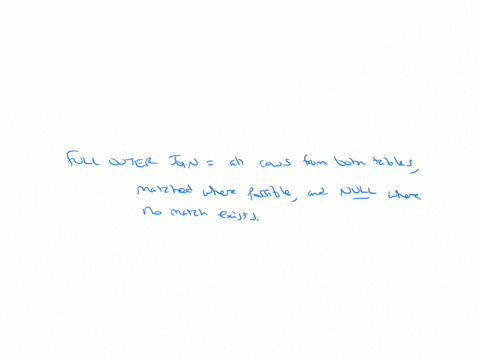 FULL OUTER JOIN = all rows from both tables,
matched where possible, and NULL where
no match exists.